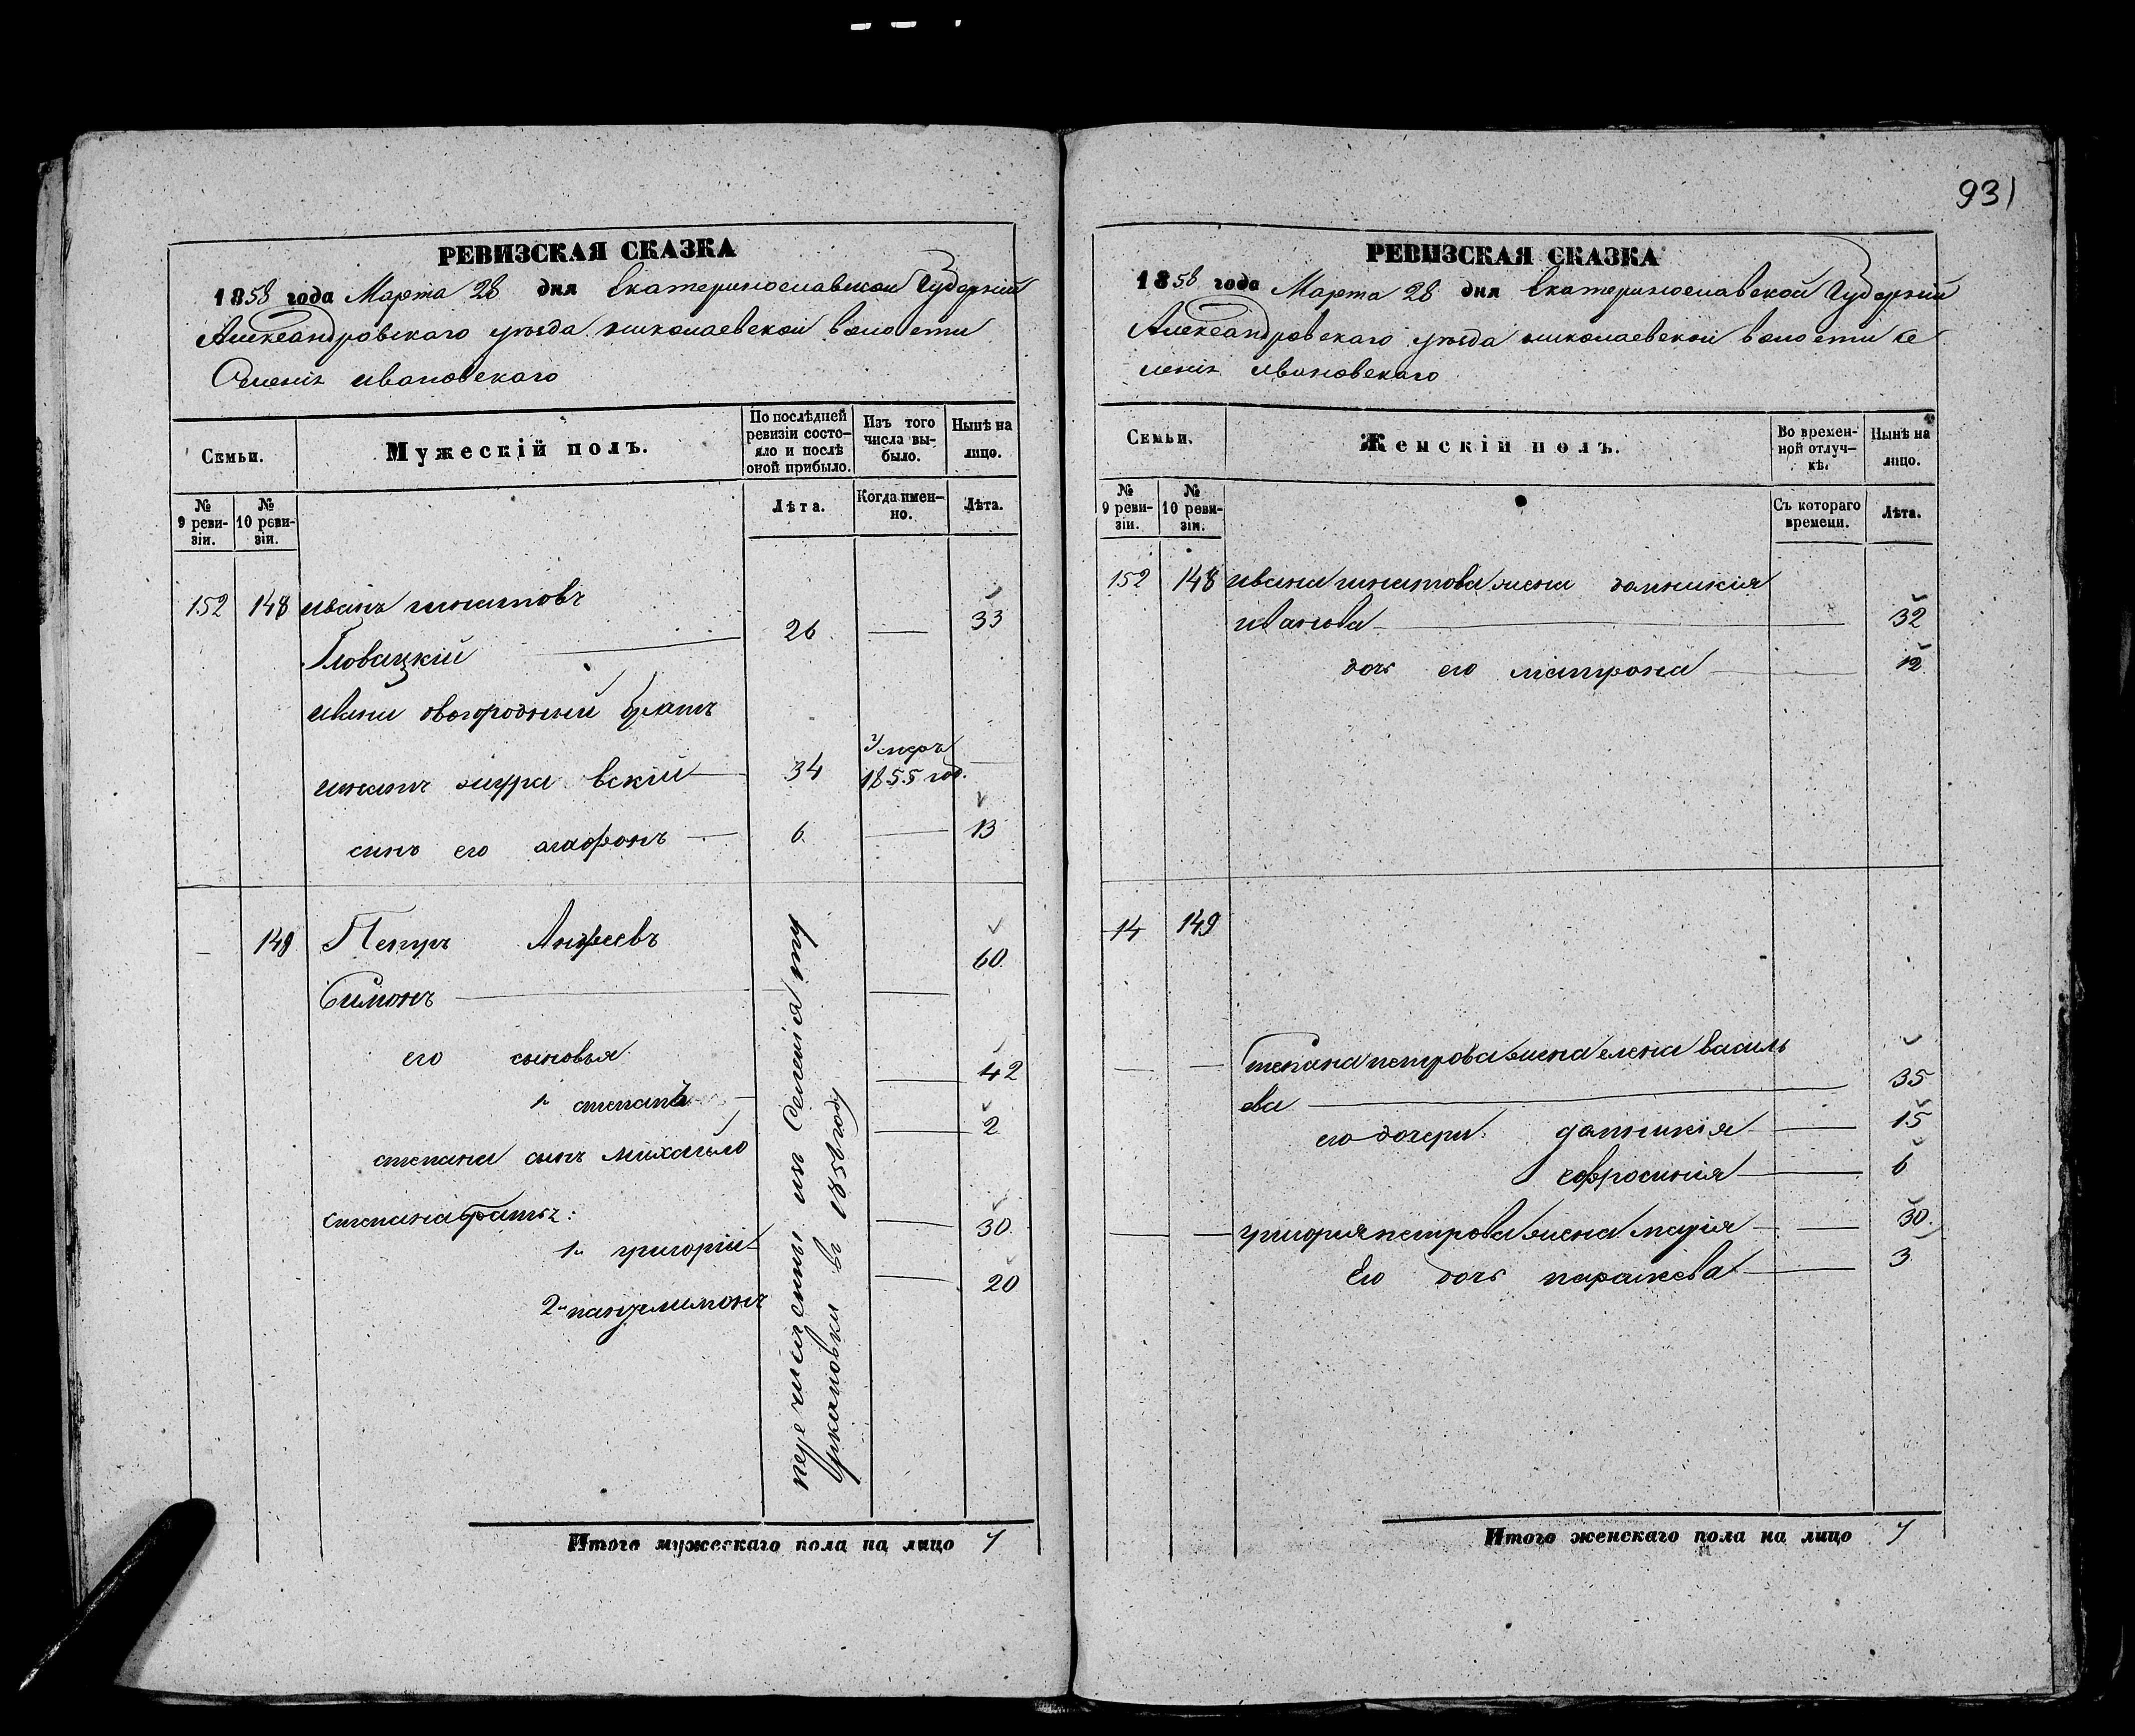 931
РЕВИЗСКАЯ СКАЗКА
1858 года Марта 28 дня Екатеринославской Губерніи
Александровскаго уѣзда николаевской волости
Селенія ивановскаго
Семьи.
Мужескій полъ.
По послѣдней ревизіи состояло и послѣ оной прибыло.
Изъ того числа выбыло.
Нынѣ на лицо.
№ 9 ревизіи.
№ 10 ревизіи.
Лѣта.
Когда именно.
Лѣта.
152 148 иванъ игнатовъ
Гловацкій 26 — 33
ивана двогородный братъ
игнатъ жура вскій 34 умеръ 1855 год.
синъ его агафонъ 6 — 13
— 149 Петръ Андреевъ 60
Симонъ
его сыновья
1й степанъ — 42
степана сынъ михайло — 2
степана братья:
1й григорій — 30
2й пантелимонъ — 20
перечислены из селенія
в 1850 году
Итого мужескаго пола на лицо 7
РЕВИЗСКАЯ СКАЗКА
1858 года Марта 28 дня Екатеринославской Губерніи
Александровскаго уѣзда николаевской волости се
ленія ивановскаго
Семьи.
Женскій полъ.
Во временной отлучкѣ.
Нынѣ на лицо.
№ 9 ревизіи.
№ 10 ревизіи.
Съ котораго времени.
Лѣта.
152 148 ивана игнатова жена домникія
иванова — 32
дочь его матрона — 12
14 149
Степана петрова жена елена василь
ева — 35
его дочери домникія — 15
евфросинія — 6
григорія петрова жена марія — 30
Его дочь параскева — 3
Итого женскаго пола на лицо 7